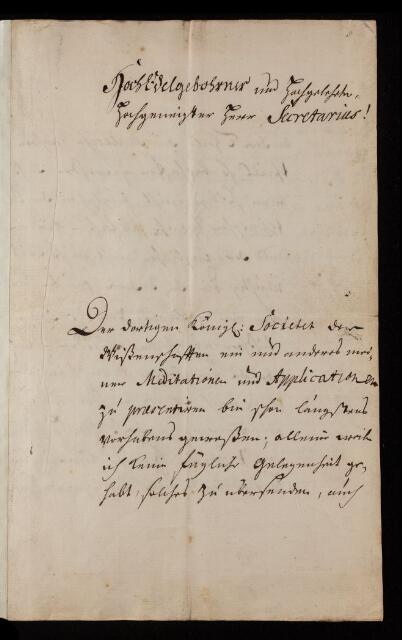 HochEdelgebohrner und Hochgelehrter,
Hochgeneigter Herr Secretarius!
Der dortigen Königl: Societet der
Wißenschafften ein und anderes mei-
ner Meditationen und Applicationen
zu præsentiren bin schon längstens
vorhabens geweßen; alleine weil
ich keine fügliche Gelegenheit ge-
habt, solches zu übersenden, auch